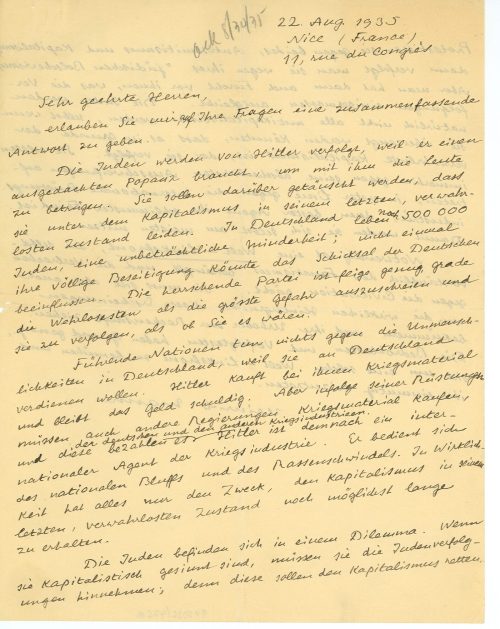 ack 8/30/35
22. Aug. 1935
Nice (France)
11, rue du Congrès
Sehr geehrte Herren,
erlauben Sie mir auf Ihre Fragen eine zusammenfassende
Antwort zu geben.
Die Juden werden von Hitler verfolgt, weil er einen
ausgedachten Popanz braucht, um mit ihm die Leute
zu betrügen. Sie sollen darüber getäuscht werden, dass
sie unter dem Kapitalismus in seinem letzten, verwahr-
losten Zustand leiden. In Deutschland leben noch 500 000
Juden, eine unbeträchtliche Minderheit; nicht einmal
ihre völlige Beseitigung könnte das Schicksal der Deutschen
beeinflussen. Die herrschende Partei ist feige genug, grade
die Wehrlosesten als die grösste Gefahr auszuschreien und
sie zu verfolgen, als ob sie es wären.
Führende Nationen tun nichts gegen die Unmensch-
lichkeiten in Deutschland, weil sie an Deutschland
verdienen wollen. Hitler kauft bei ihnen Kriegsmaterial
und bleibt das Geld schuldig. Aber infolge seiner Rüstungen
müssen auch andere Regierungen Kriegsmaterial kaufen,
und diese bezahlen es. Hitler ist demnach ein inter-
der deutschen und den anderen Kriegsindustrieen.
nationaler Agent der Kriegsindustrie. Er bedient sich
des nationalen Bluffs und des Rassenschwindels. In Wirklich-
keit hat alles nur den Zweck, den Kapitalismus in seinem
letzten, verwahrlosten Zustand noch möglichst lange
zu erhalten.
Die Juden befinden sich in einem Dilemma. Wenn
sie kapitalistisch gesinnt sind, müssen sie die Judenverfolg-
ungen hinnehmen; denn diese sollen den Kapitalismus retten.